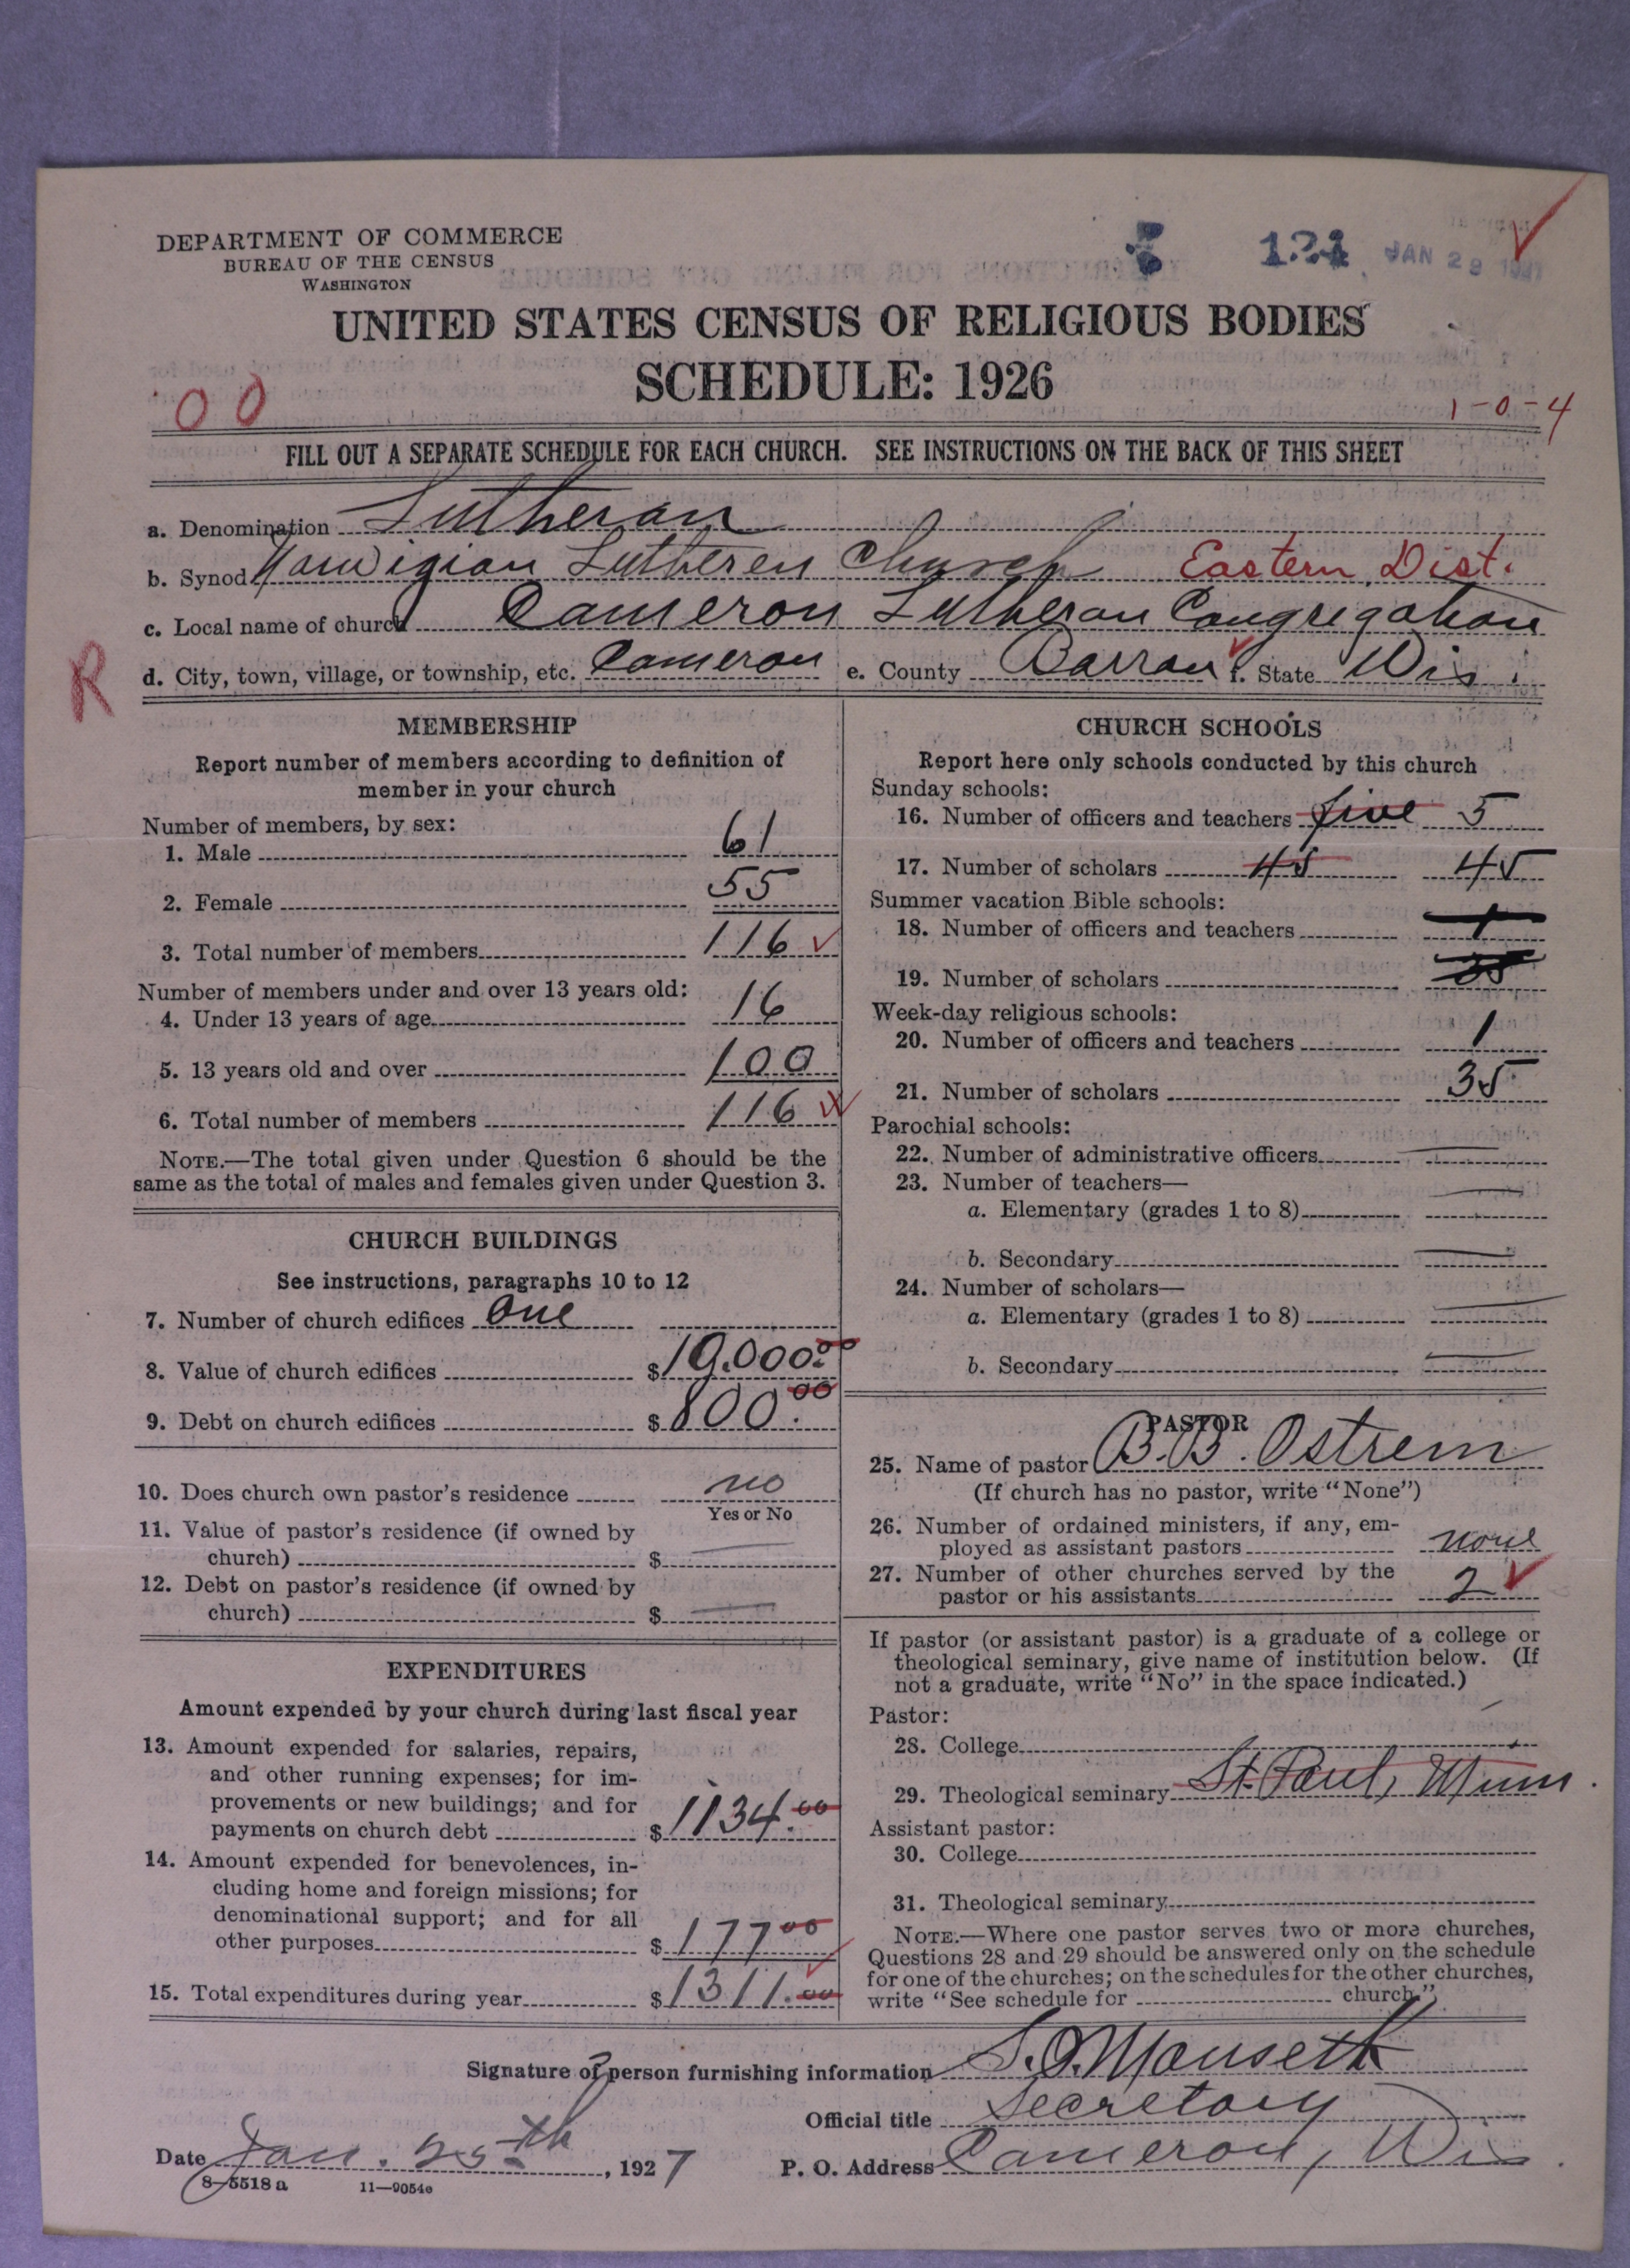 DEPARTMENT OF COMMERCE
BUREAU OF THE CENSUS
WASHINGTON
124 JAN 29 1927
UNITED STATES CENSUS OF RELIGIOUS BODIES
SCHEDULE: 1926
00
1-0-4
FILL OUT A SEPARATE SCHEDULE FOR EACH CHURCH. SEE INSTRUCTIONS ON THE BACK OF THIS SHEET
a. Denomination Lutheran
b. Synod Norwigian Lutheren Church Eastern Dist.
c. Local name of church Cameron Lutheran Congregation
R
d. City, town, village, or township, etc. Cameron e. County Barron f. State Wis.
MEMBERSHIP
Report number of members according to definition of
member in your church
Number of members, by sex:
1. Male 61
2. Female 55
3. Total number of members 116
Number of members under and over 13 years old:
4. Under 13 years of age 16
5. 13 years old and over 100
6. Total number of members 116
NOTE.—The total given under Question 6 should be the
same as the total of males and females given under Question 3.
CHURCH BUILDINGS
See instructions, paragraphs 10 to 12
7. Number of church edifices One
8. Value of church edifices $19.000.00
9. Debt on church edifices $800.00
10. Does church own pastor's residence no
Yes or No
11. Value of pastor's residence (if owned by
church) $
12. Debt on pastor's residence (if owned by
church) $
EXPENDITURES
Amount expended by your church during last fiscal year
13. Amount expended for salaries, repairs,
and other running expenses; for im-
provements or new buildings; and for
payments on church debt $1134.00
14. Amount expended for benevolences, in-
cluding home and foreign missions; for
denominational support; and for all
other purposes $177 00
15. Total expenditures during year $1311.00
CHURCH SCHOOLS
Report here only schools conducted by this church
Sunday schools:
16. Number of officers and teachers five 5
17. Number of scholars 45 45
Summer vacation Bible schools:
18. Number of officers and teachers 1
19. Number of scholars 35
Week-day religious schools:
20. Number of officers and teachers 1
21. Number of scholars 35
Parochial schools:
22. Number of administrative officers
23. Number of teachers—
a. Elementary (grades 1 to 8)
b. Secondary
24. Number of scholars—
a. Elementary (grades 1 to 8)
b. Secondary
PASTOR
25. Name of pastor B.B. Ostrem
(If church has no pastor, write "None")
26. Number of ordained ministers, if any, em-
ployed as assistant pastors none
27. Number of other churches served by the
pastor or his assistants 2
If pastor (or assistant pastor) is a graduate of a college or
theological seminary, give name of institution below. (If
not a graduate, write "No" in the space indicated.)
Pastor:
28. College
29. Theological seminary St. Paul, Minn.
Assistant pastor:
30. College
31. Theological seminary
NOTE.—Where one pastor serves two or more churches,
Questions 28 and 29 should be answered only on the schedule
for one of the churches; on the schedules for the other churches,
write "See schedule for church."
Signature of person furnishing information S.O. Manseth
Official title Secretary
Date Jan. 25th, 1927 P. O. Address Cameron, Wis.
8-5518 a 11—9054e